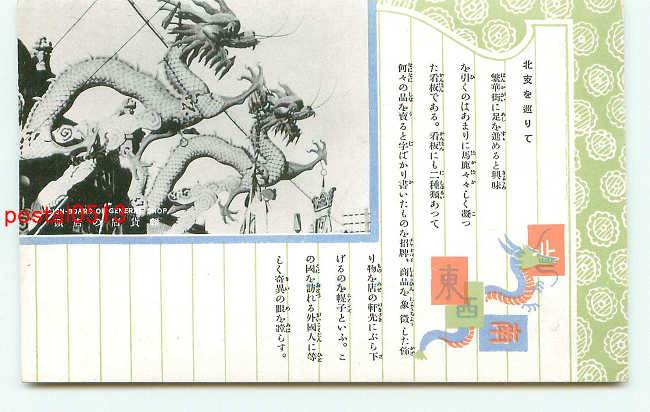 北支を巡りて
繁華街に足を進めると興味
を引くのはあまりに馬鹿々々しく凝つ
た看板である。看板にも二種類あつて
何々の品を賣ると字ばかり書いたものを招牌、商品を象徴した飾
り物を店の軒先にぶら下
げるのを幌子といふ。こ
の國を訪れる外國人に等
しく奇異の眼を瞠らす。
北
東
西
南
SIGN-BOARD OF GENERAL SHOP
postal0519